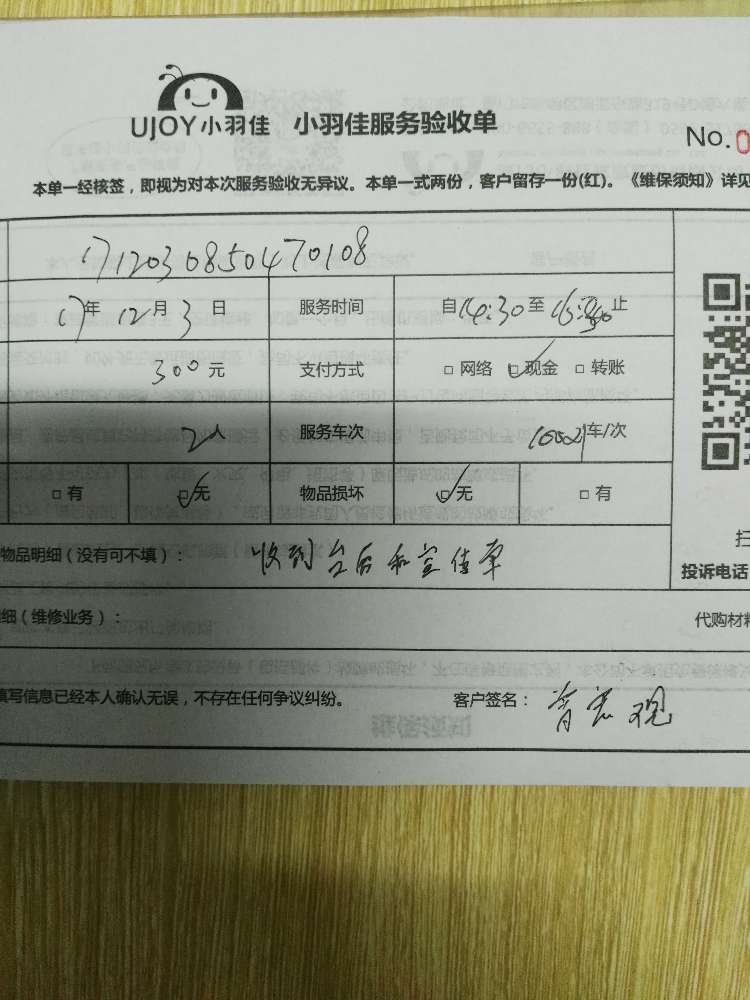 UJOY小羽佳 小羽佳服务验收单
No.0
本单一经核签，即视为对本次服务验收无异议。本单一式两份，客户留存一份(红)。《维保须知》详见
1712030850470108
17年 12月 3日 服务时间 自14:30至16:30止
300元 支付方式 □ 网络 □ 现金 □ 转账
2人 服务车次 车/次
□ 有 □ 无 物品损坏 □ 无 □ 有
物品明细（没有可不填）： 收到台历和宣传单
扫
投诉电话
细（维修业务）： 代购材料
填写信息已经本人确认无误，不存在任何争议纠纷。 客户签名：